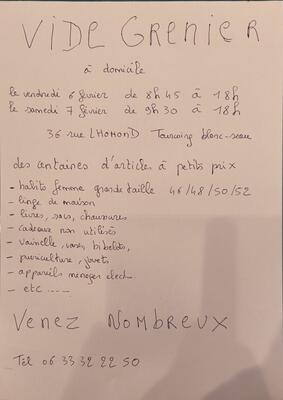 VIDE GRENIER
à domicile
le vendredi 6 février de 8h45 à 18h
le samedi 7 février de 9h30 à 18h
36 rue LHOMOND Tourcoing blanc-seau
des centaines d'articles à petits prix
- habits femme grande taille 46/48/50/52
- linge de maison
- livres, sacs, chaussures
- cadeaux non utilisés
- vaisselle, vases, bibelots,
- puericulture, jouets
- appareils ménager elect..
- etc .....
VENEZ NOMBREUX
Tél 06 33 32 22 50